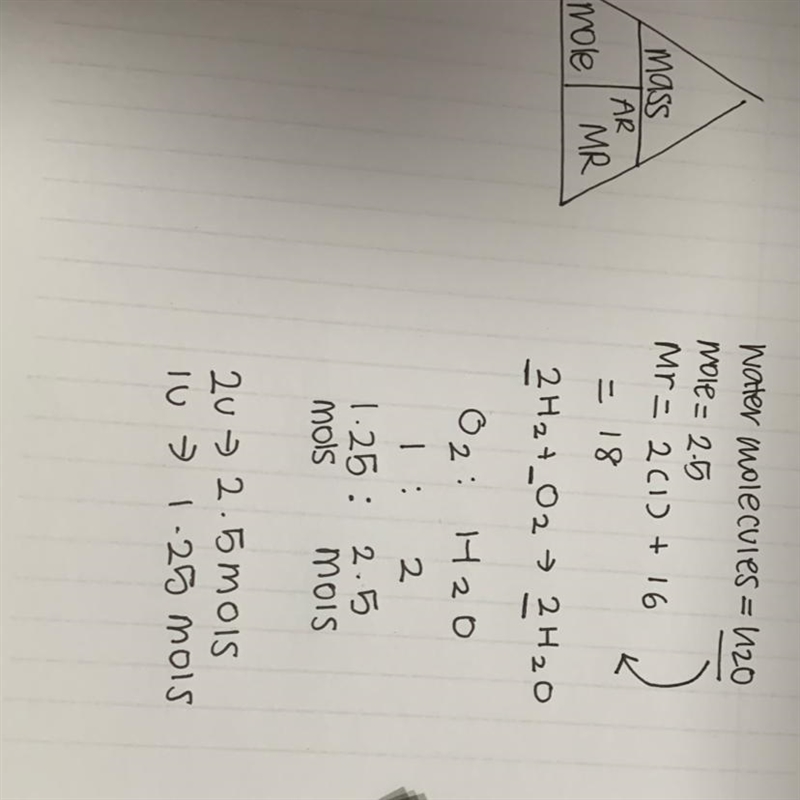 mass
mole
AR
MR
Water molecules = H2O
mole = 2.5
Mr = 2(1) + 16
= 18
2H2 + _O2 → 2H2O
O2 : H2O
1 : 2
1.25 : 2.5
mols mols
2u → 2.5 mols
1u → 1.25 mols